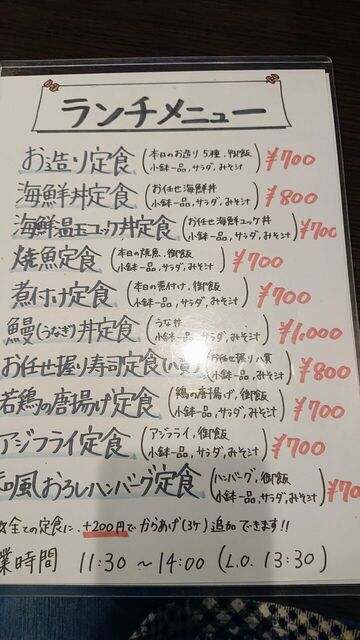 ランチメニュー
お造り定食 (本日のお造り 5種、御飯 小鉢一品、サラダ、みそ汁) ¥700
海鮮丼定食 (お任せ海鮮丼 小鉢一品、サラダ、みそ汁) ¥800
海鮮温玉ユッケ丼定食 (お任せ海鮮ユッケ丼 小鉢一品、サラダ、みそ汁) ¥700
焼魚定食 (本日の焼魚、御飯 小鉢一品、サラダ、みそ汁) ¥700
煮付け定食 (本日の煮付け、御飯 小鉢一品、サラダ、みそ汁) ¥700
鰻(うなぎ)丼定食 (うな丼 小鉢一品、サラダ、みそ汁) ¥1,000
お任せ握り寿司定食(八貫) (お任せ握り八貫 小鉢一品、サラダ、みそ汁) ¥800
若鶏の唐揚げ定食 (鶏の唐揚げ、御飯 小鉢一品、サラダ、みそ汁) ¥700
アジフライ定食 (アジフライ、御飯 小鉢一品、サラダ、みそ汁) ¥700
和風おろしハンバーグ定食 (ハンバーグ、御飯 小鉢一品、サラダ、みそ汁) ¥70
全ての定食に、+200円で からあげ(3ケ) 追加できます!!
業時間 11:30 ~ 14:00 (L.O. 13:30)